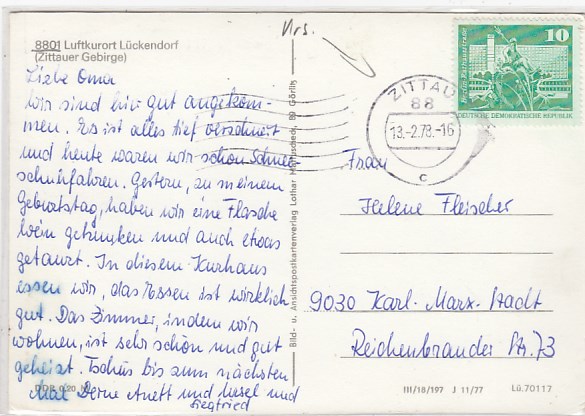 8801 Luftkurort Lückendorf
(Zittauer Gebirge)
Liebe Oma
wir sind hier gut angekom-
men. Es ist alles tief verschneit
und heute waren wir schon Schnee-
schuhfahren. Gestern, zu meinem
Geburtstag, haben wir eine Flasche
Wein getrunken und auch etwas
getanzt. In diesem Kurhaus
essen wir, das Essen ist wirklich
gut. Das Zimmer, indem wir
wohnen, ist sehr schön und gut
geheizt. Tschüs bis zum nächsten
Mal Deine Anett und Ursel und
Siegfried
DDR 0,20 M
Bild- u. Ansichtspostkartenverlag Lothar 89 Görlitz
Vrs.
10
DEUTSCHE DEMOKRATISCHE REPUBLIK
ZITTAU
88
13.-2.78.-16
c
Frau
Helene Fleischer
9030 Karl-Marx-Stadt
Reichenbrander Str. 73
III/18/197 J 11/77
Lü.70117